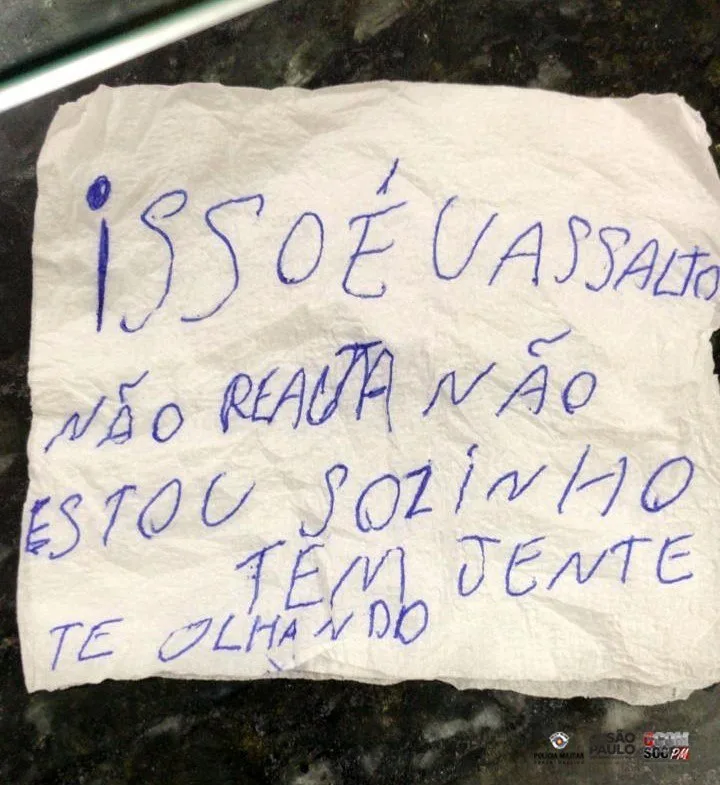 iSSO É U ASSALTO
NÃO REAGTA NÃO
ESTOU SOZINHO
TEM JENTE
TE OLHANDO
POLÍCIA MILITAR
SÃO PAULO
SOC PM